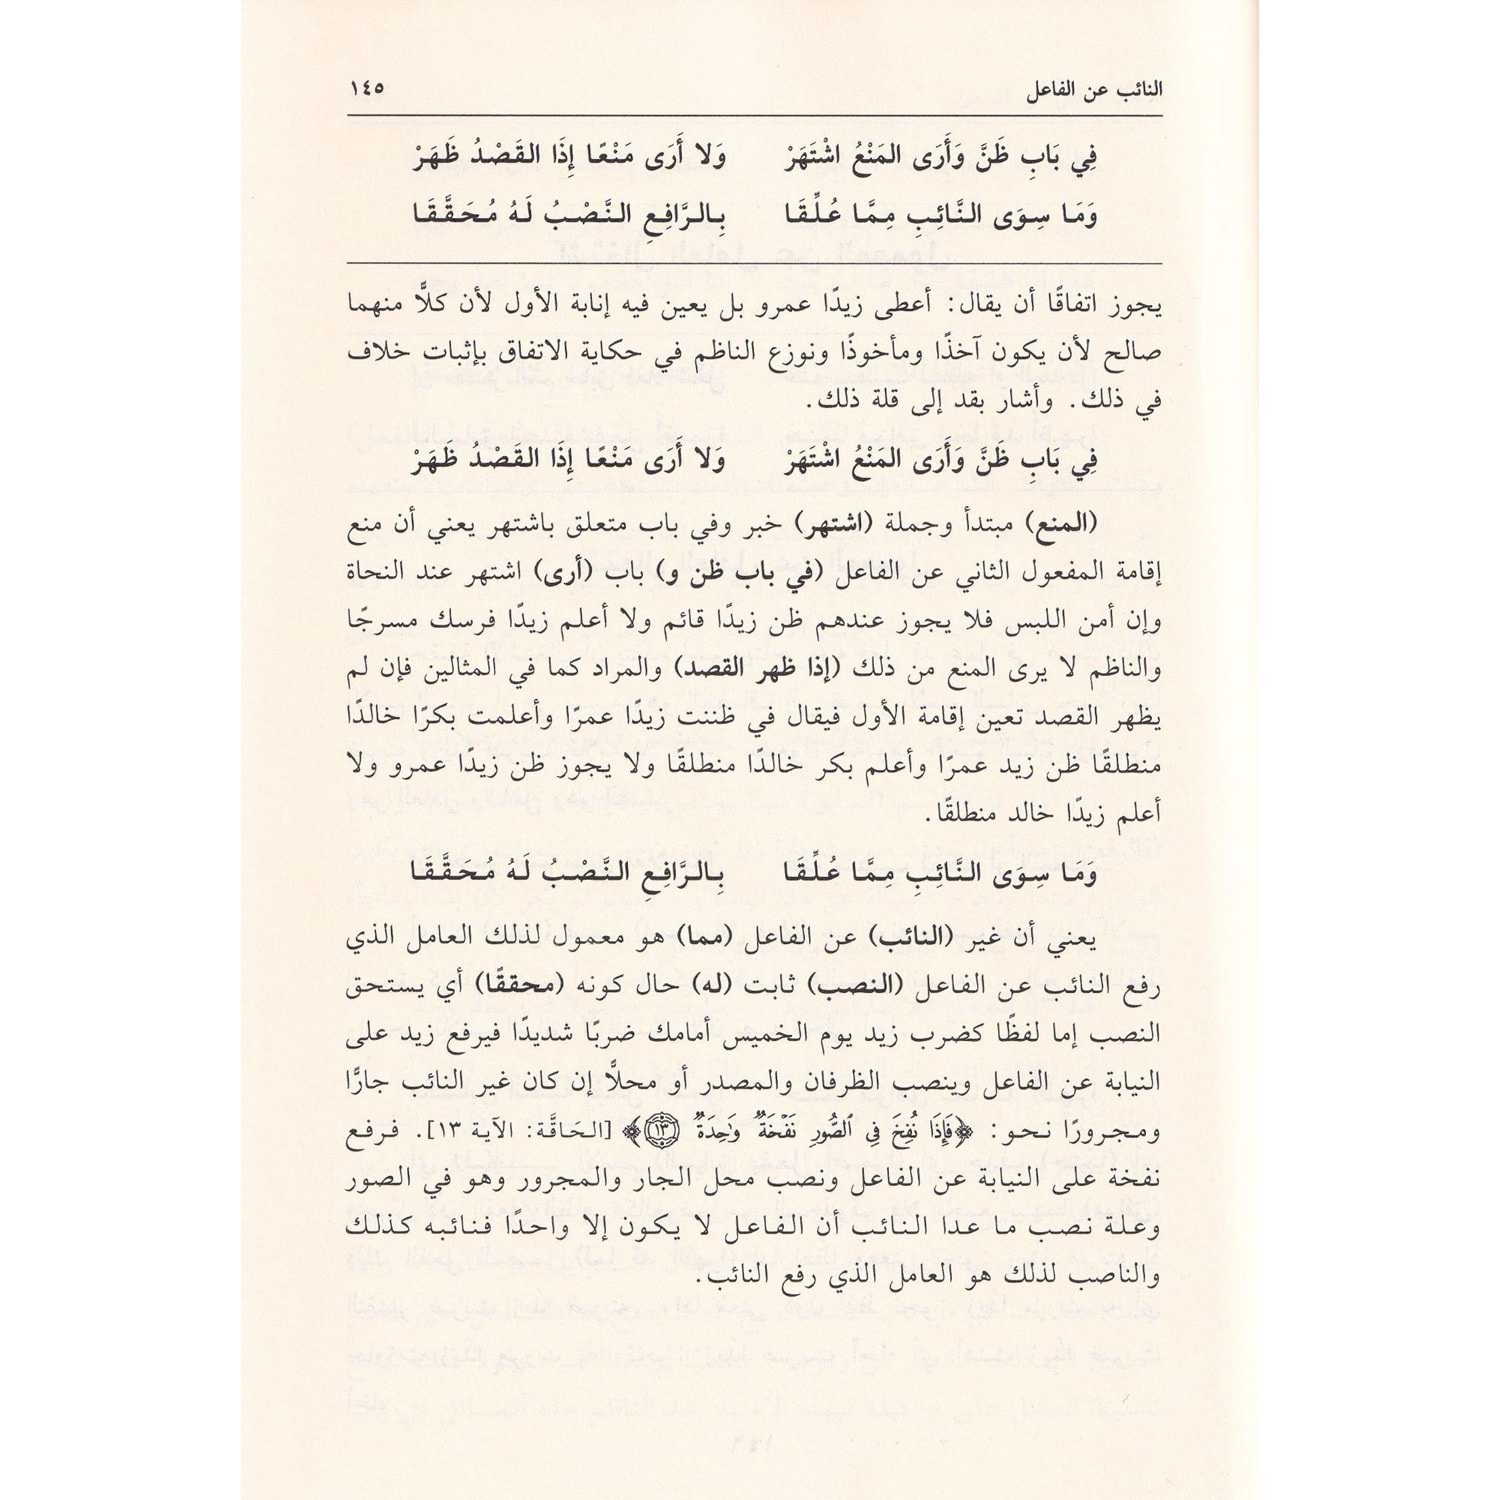 النائب عن الفاعل ١٤٥
فِي بَابِ ظَنَّ وَأَرَى المَنْعُ اشْتَهَرْ وَلا أَرَى مَنْعًا إِذَا القَصْدُ ظَهَرْ
وَمَا سِوَى النَّائِبِ مِمَّا عُلِّقَا بِالرَّافِعِ النَّصْبُ لَهُ مُحَقَّقَا
يجوز اتفاقًا أن يقال: أعطى زيدًا عمرو بل يعين فيه إنابة الأول لأن كلًّا منهما
صالح لأن يكون آخذًا ومأخوذًا ونوزع الناظم في حكاية الاتفاق بإثبات خلاف
في ذلك. وأشار بقد إلى قلة ذلك.
فِي بَابِ ظَنَّ وَأَرَى المَنْعُ اشْتَهَرْ وَلا أَرَى مَنْعًا إِذَا القَصْدُ ظَهَرْ
(المنع) مبتدأ وجملة (اشتهر) خبر وفي باب متعلق باشتهر يعني أن منع
إقامة المفعول الثاني عن الفاعل (في باب ظن و) باب (أرى) اشتهر عند النحاة
وإن أمن اللبس فلا يجوز عندهم ظن زيدًا قائم ولا أعلم زيدًا فرسك مسرجًا
والناظم لا يرى المنع من ذلك (إذا ظهر القصد) والمراد كما في المثالين فإن لم
يظهر القصد تعين إقامة الأول فيقال في ظننت زيدًا عمرًا وأعلمت بكرًا خالدًا
منطلقًا ظن زيد عمرًا وأعلم بكر خالدًا منطلقًا ولا يجوز ظن زيدًا عمرو ولا
أعلم زيدًا خالد منطلقًا.
وَمَا سِوَى النَّائِبِ مِمَّا عُلِّقَا بِالرَّافِعِ النَّصْبُ لَهُ مُحَقَّقَا
يعني أن غير (النائب) عن الفاعل (مما) هو معمول لذلك العامل الذي
رفع النائب عن الفاعل (النصب) ثابت (له) حال كونه (محققًا) أي يستحق
النصب إما لفظًا كضرب زيد يوم الخميس أمامك ضربًا شديدًا فيرفع زيد على
النيابة عن الفاعل وينصب الظرفان والمصدر أو محلًّا إن كان غير النائب جارًّا
ومجرورًا نحو: ﴿فَإِذَا نُفِخَ فِي ٱلصُّورِ نَفْخَةٌ وَٰحِدَةٌ ١٣﴾ [الحَاقَّة: الآية ١٣]. فرفع
نفخة على النيابة عن الفاعل ونصب محل الجار والمجرور وهو في الصور
وعلة نصب ما عدا النائب أن الفاعل لا يكون إلا واحدًا فنائبه كذلك
والناصب لذلك هو العامل الذي رفع النائب.